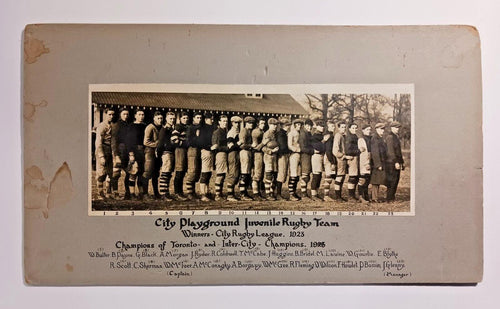 1 2 3 4 5 6 7 8 9 10 11 12 13 14 15 16 17 18 19 20 21 22 23
City Playground Juvenile Rugby Team
Winners - City Rugby League. 1923
Champions of Toronto - and - Inter-City - Champions. 1925
W. Butler B. Dijone G. Black A. Morgan J. Ryder R. Coldwell T. McCabe J. Huggins B. Bristol M. Levine W. E. Blythe
R. Scott C. Sherman W. McVeer A. McConaghy A. Burgoyn W. McGee R. Fleming D. Wilson F. P. Bonus
(Captain) (Manager)